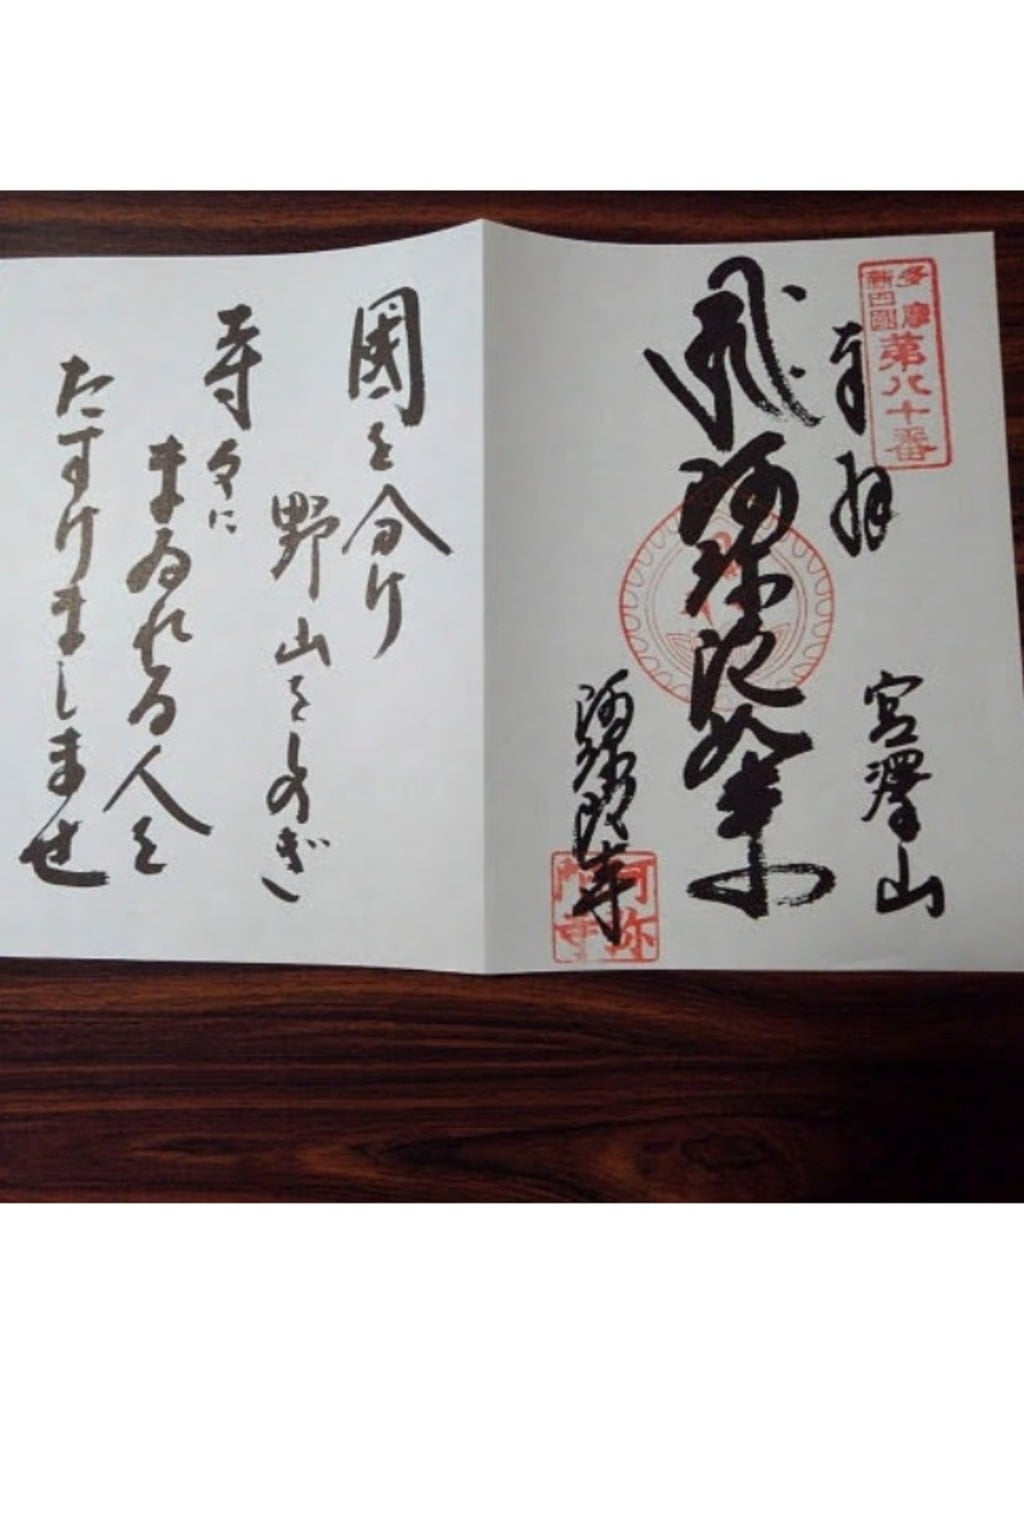 多摩
新四國
第八十番
奉拝
宮澤山
阿弥陀如来
阿弥陀寺
阿弥陀寺
國を分け
野山をしのぎ
寺々に
まゐれる人を
たすけましませ